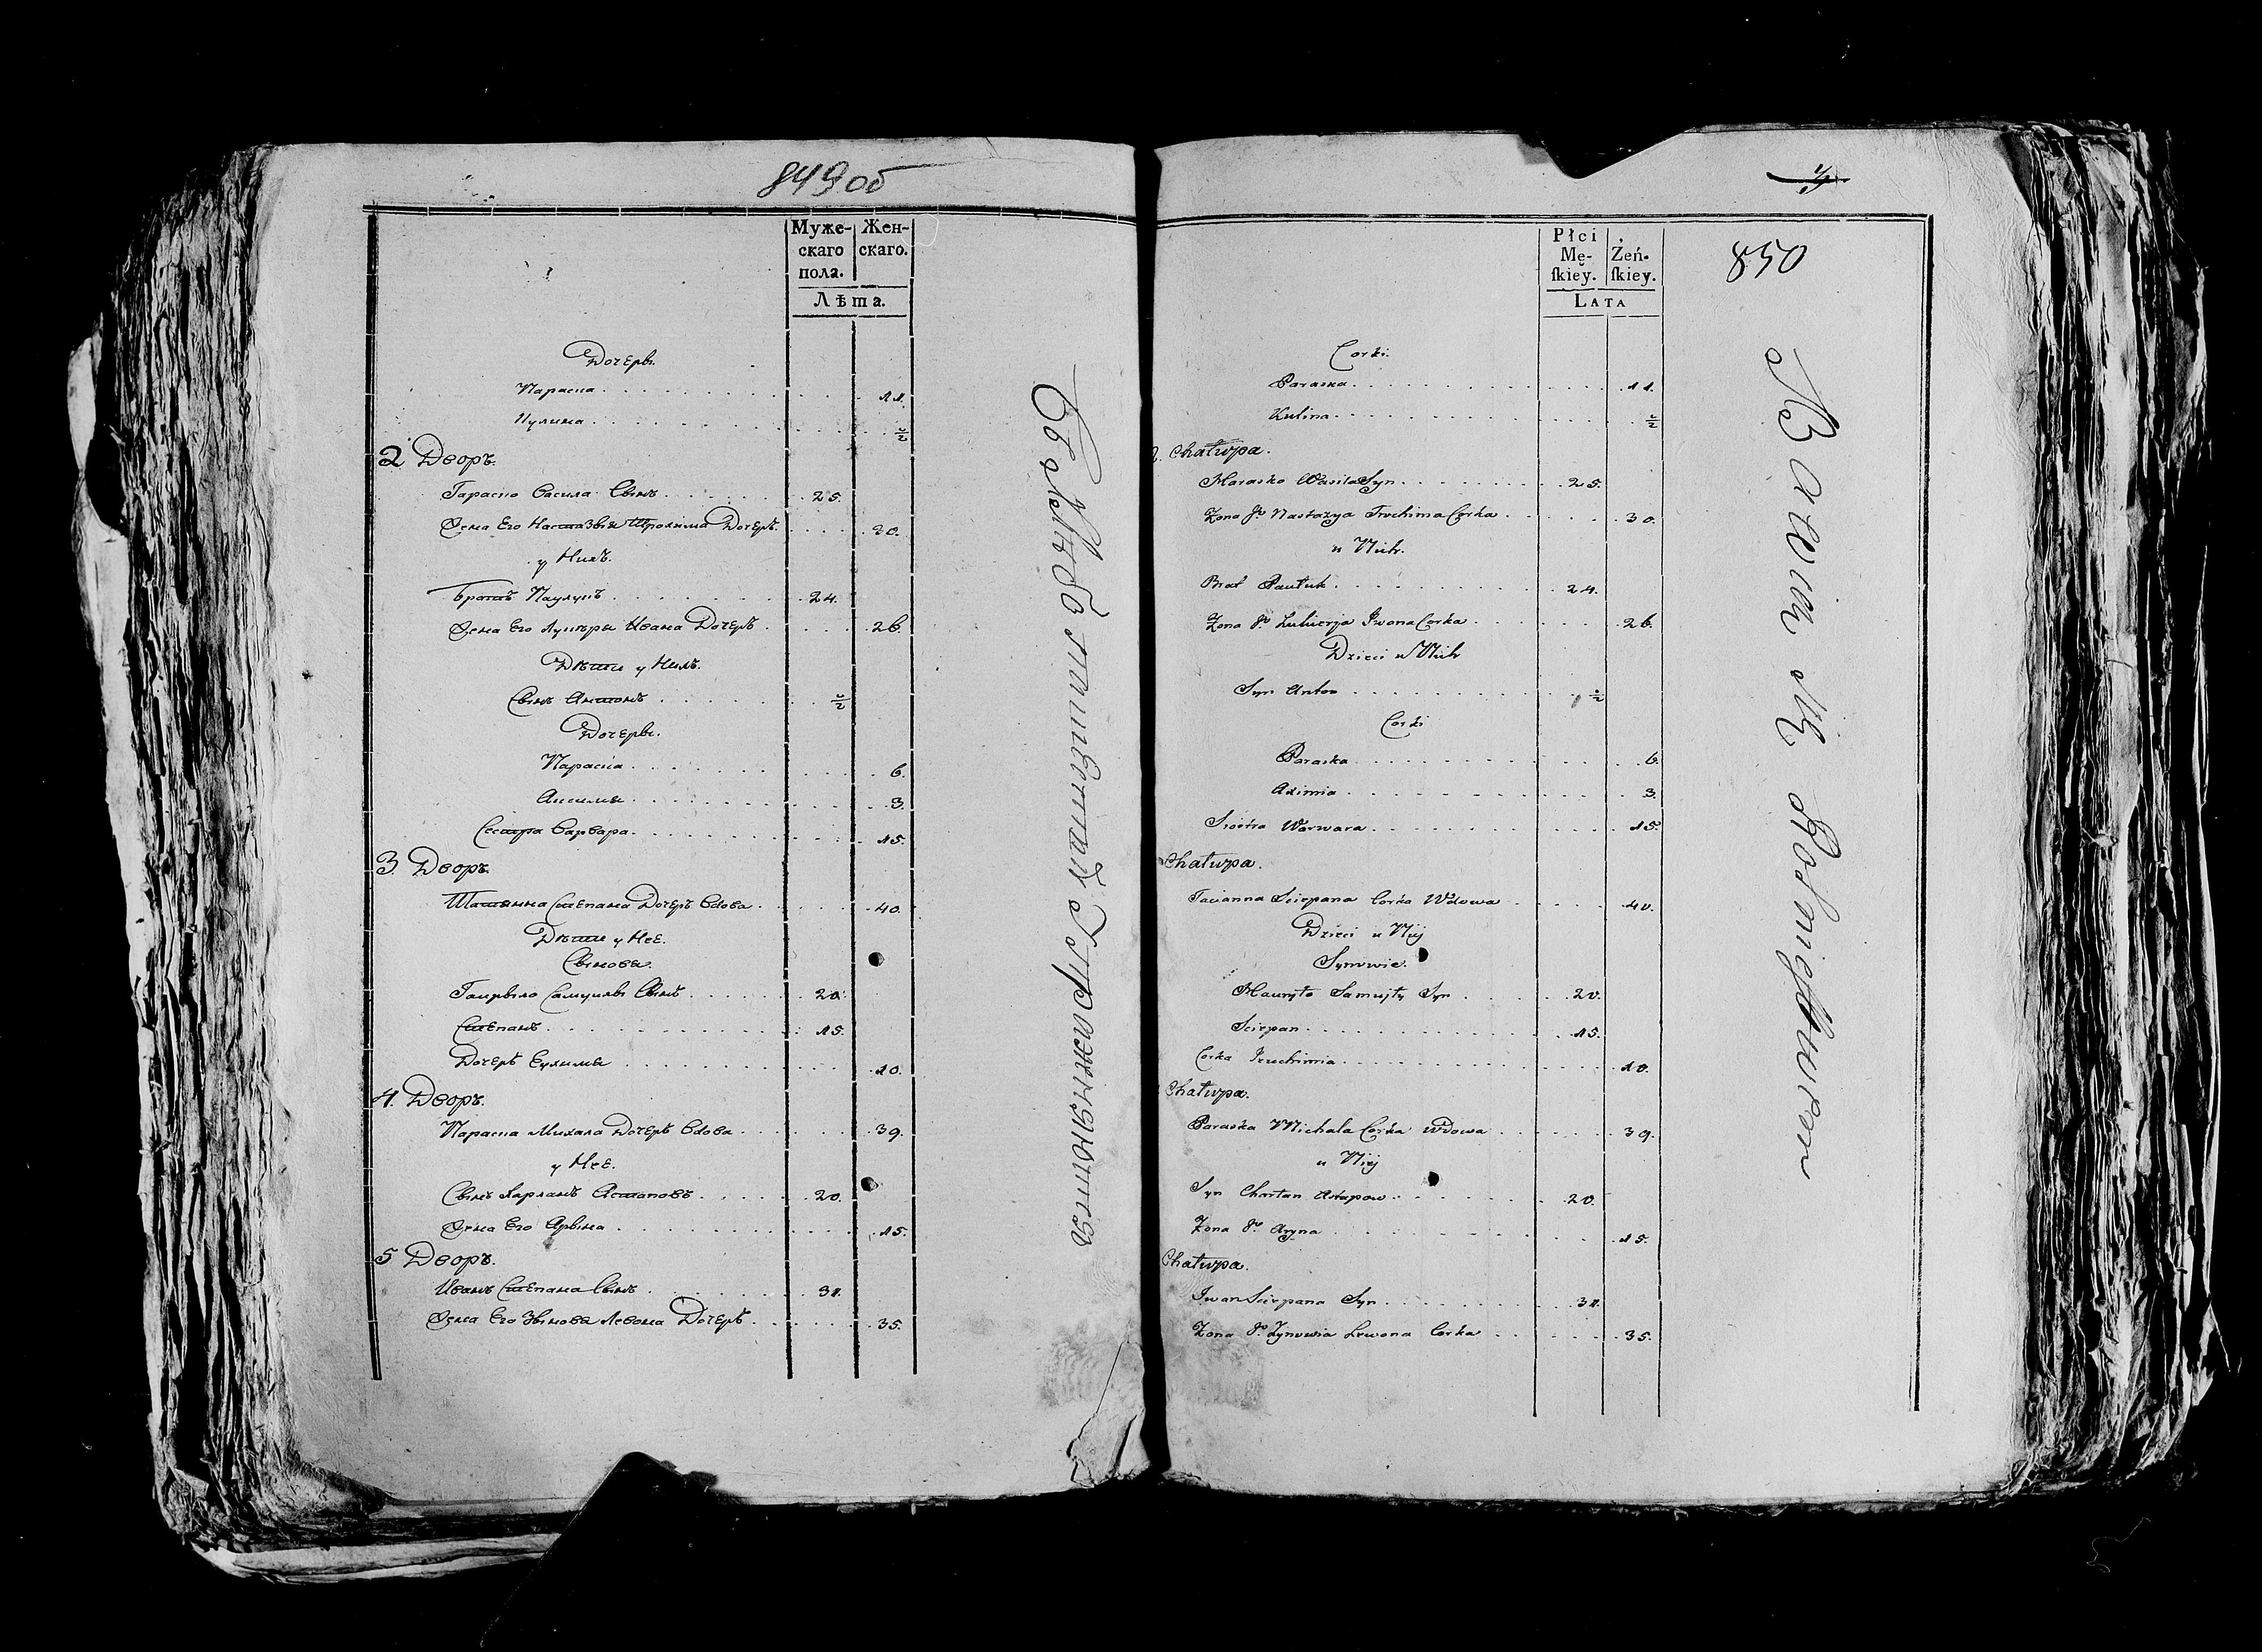 849 об
Муже- Жен-
скаго скаго.
пола.
Лѣта.
Дочеры.
Параска 11.
Кулина ½
2 Дворъ.
Гараско Васила Сынъ 25.
Жена Его Настазыя Трохима Дочерь 30.
у Нихъ.
Братъ Паулукъ 24.
Жена Его Лукѣрья Ивана Дочерь 26.
Дѣти у Нихъ.
Сынъ Антонъ ½
Дочеры.
Параска 6.
Аксимья 3.
Сестра Варвара 15.
3. Дворъ.
Татьянна Степана Дочерь Вдова 40.
Дѣти у Неё.
Сыновья.
Гаврыло Самуилы Сынъ 20.
Степанъ 15.
Дочерь Еухимья 10.
4. Дворъ.
Параска Михала Дочерь Вдова 39.
у Неё.
Сынъ Харланъ Астаповъ 20.
Жена Его Арына 15.
5 Дворъ.
Иванъ Степана Сынъ 31.
Жена Его Зыновья Левона Дочерь 35.
3
850
Płci
Mę- Żeń-
ſkiey. ſkiey.
LATA
Corki.
Paraska 11.
Kulina ½
2. Chałupa.
Harasko Wasila Syn 25.
Zona Jo Nastazya Trochima Corka 30.
u Nich.
Brat Pauluk 24.
Zona Jo Lukierja Iwana Corka 26.
Dzieci u Nich
Syn Anton ½
Corki
Paraska 6.
Aximia 3.
Siostra Warwara 15.
Chałupa.
Tacianna Sciepana Corka Wdowa 40.
Dzieci u Niej
Synowie.
Hauryło Samujły Syn 20.
Sciepan 15.
Corka Jeuchimia 10.
Chałupa.
Paraska Michala Corka Wdowa 39.
u Niej
Syn Charłan Astapow 20.
Zona Jo Aryna 15.
Chałupa.
Iwan Sciepana Syn 31.
Zona Jo Zynowia Lewona Corka 35.